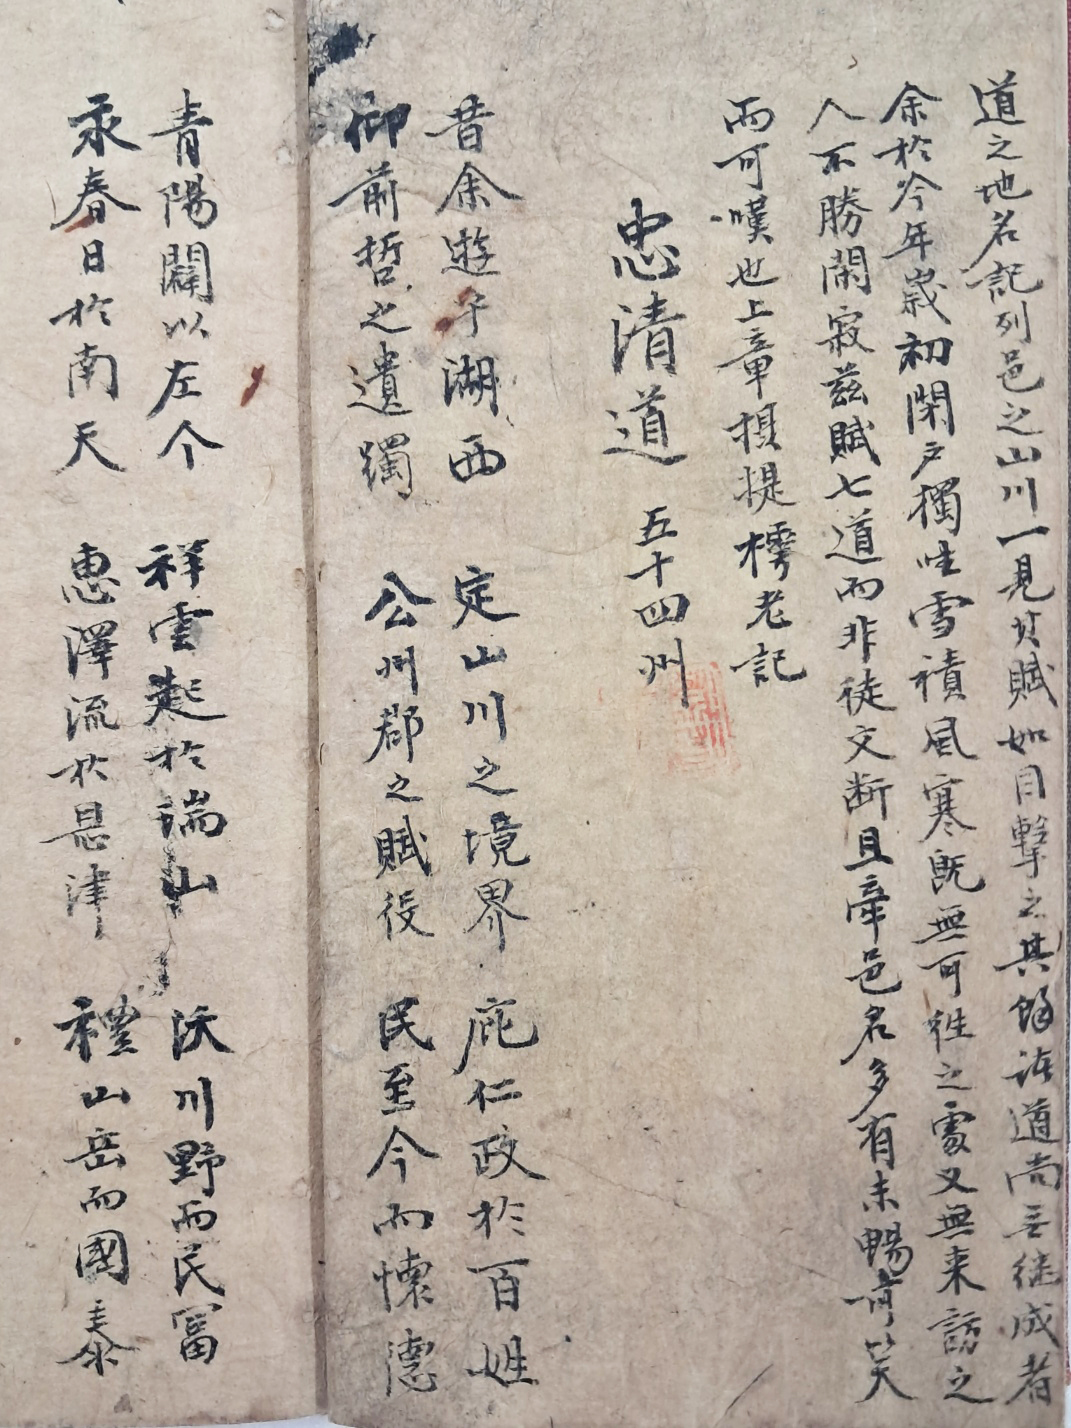 道之地名記列邑之山川一見其賦如目擊之其餘諸道尚無繼成者
余於今年歲初閉戶獨坐雪積風寒旣無可往之處又無来訪之
人不勝閑寂茲賦七道而非徒文斷且章邑名多有未暢可笑
而可嘆也上章攝提樗老記
忠清道 五十四州
昔余遊于湖西 定山川之境界 庇仁政於百姓
御前哲之遺躅 公州郡之賦役 民至今而懷德
青陽闢以左个 祥雲起於瑞山 沃川野而民富
永春日於南天 惠澤流於恩津 禮山岳而國泰